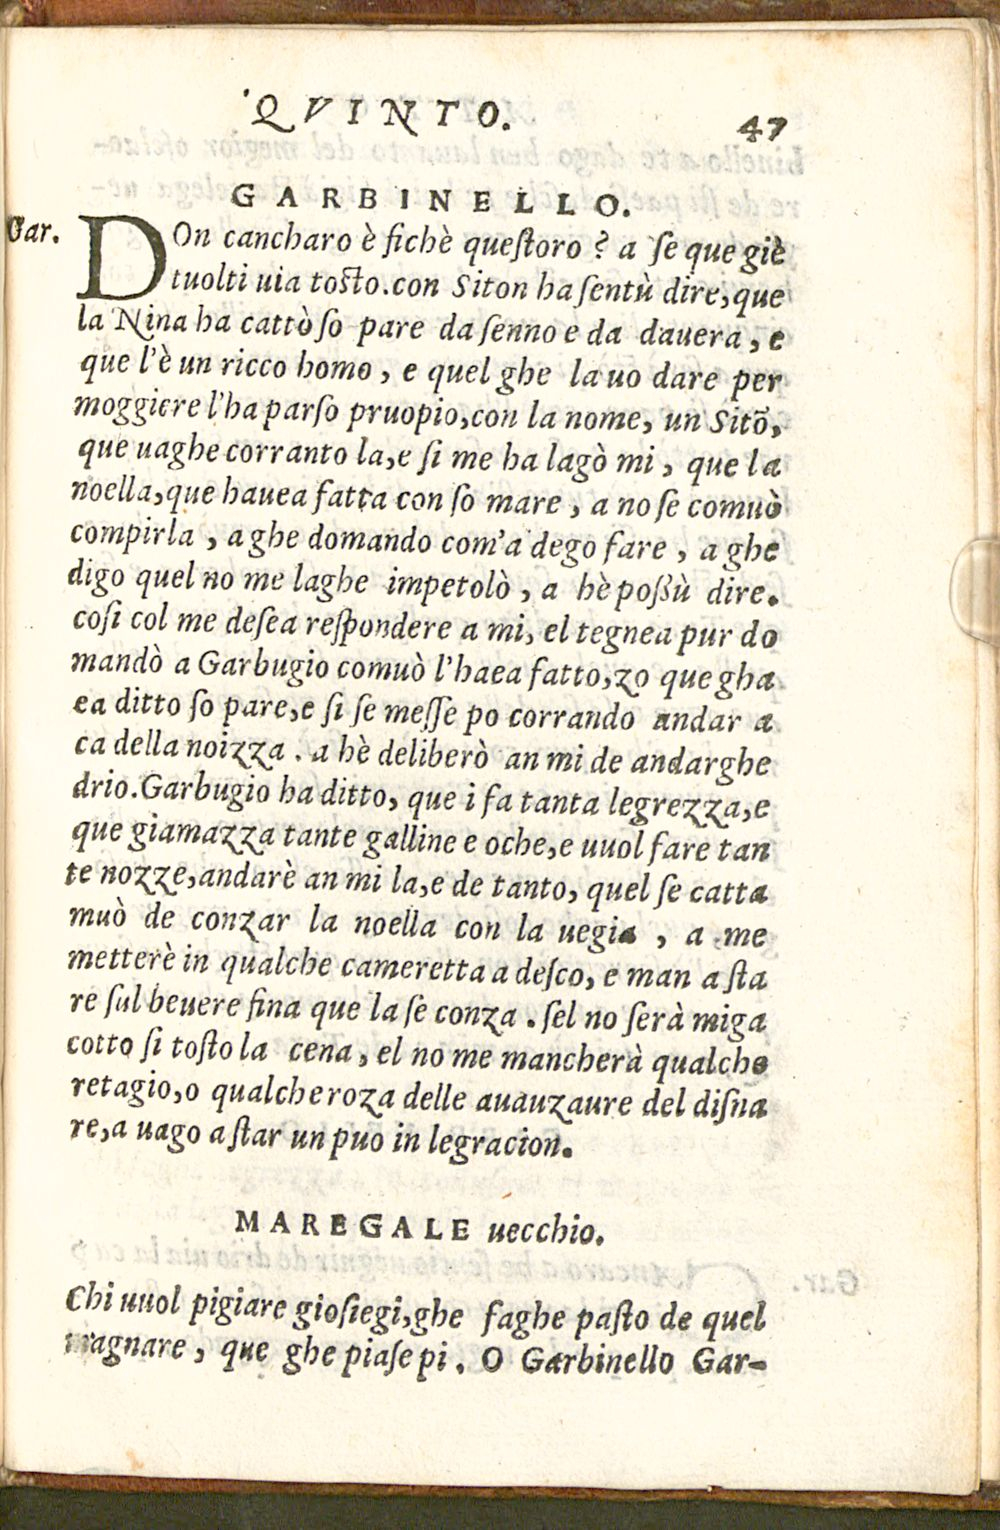 QVINTO.
47
GARBINELLO.
Gar.
DOn cancharo è fichè queſtoro ? a ſe que giè
tuolti uia toſto.con Siton ha ſentù dire,que
la Nina ha cattò ſo pare da ſenno e da dauera, e
que l'è un ricco homo, e quel ghe la uo dare per
moggiere l'ha parſo pruopio,con la nome, un Sitõ,
que uaghe corranto la,e ſi me ha lagò mi, que la
noella,que hauea fatta con ſo mare, a no ſe comuò
compirla, a ghe domando com'a dego fare, a ghe
digo quel no me laghe impetolò, a hè poſſù dire.
coſi col me deſea reſpondere a mi, el tegnea pur do
mandò a Garbugio comuò l'haea fatto,zo que gha
ea ditto ſo pare,e ſi ſe meſſe po corrando andar a
ca della noizza. a hè deliberò an mi de andarghe
drio.Garbugio ha ditto, que i fa tanta legrezza,e
que giamazza tante galline e oche,e uuol fare tan
te nozze,andarè an mi la,e de tanto, quel ſe catta
muò de conzar la noella con la uegia, a me
metterè in qualche cameretta a deſco, e man a ſta
re ſul beuere fina que la ſe conza. ſel no ſerà miga
cotto ſi toſto la cena, el no me mancherà qualche
retagio,o qualche roza delle auauzaure del diſna
re,a uago a ſtar un puo in legracion.
MAREGALE uecchio.
Chi uuol pigiare gioſiegi,ghe faghe paſto de quel
magnare, que ghe piaſe pi. O Garbinello Gar-